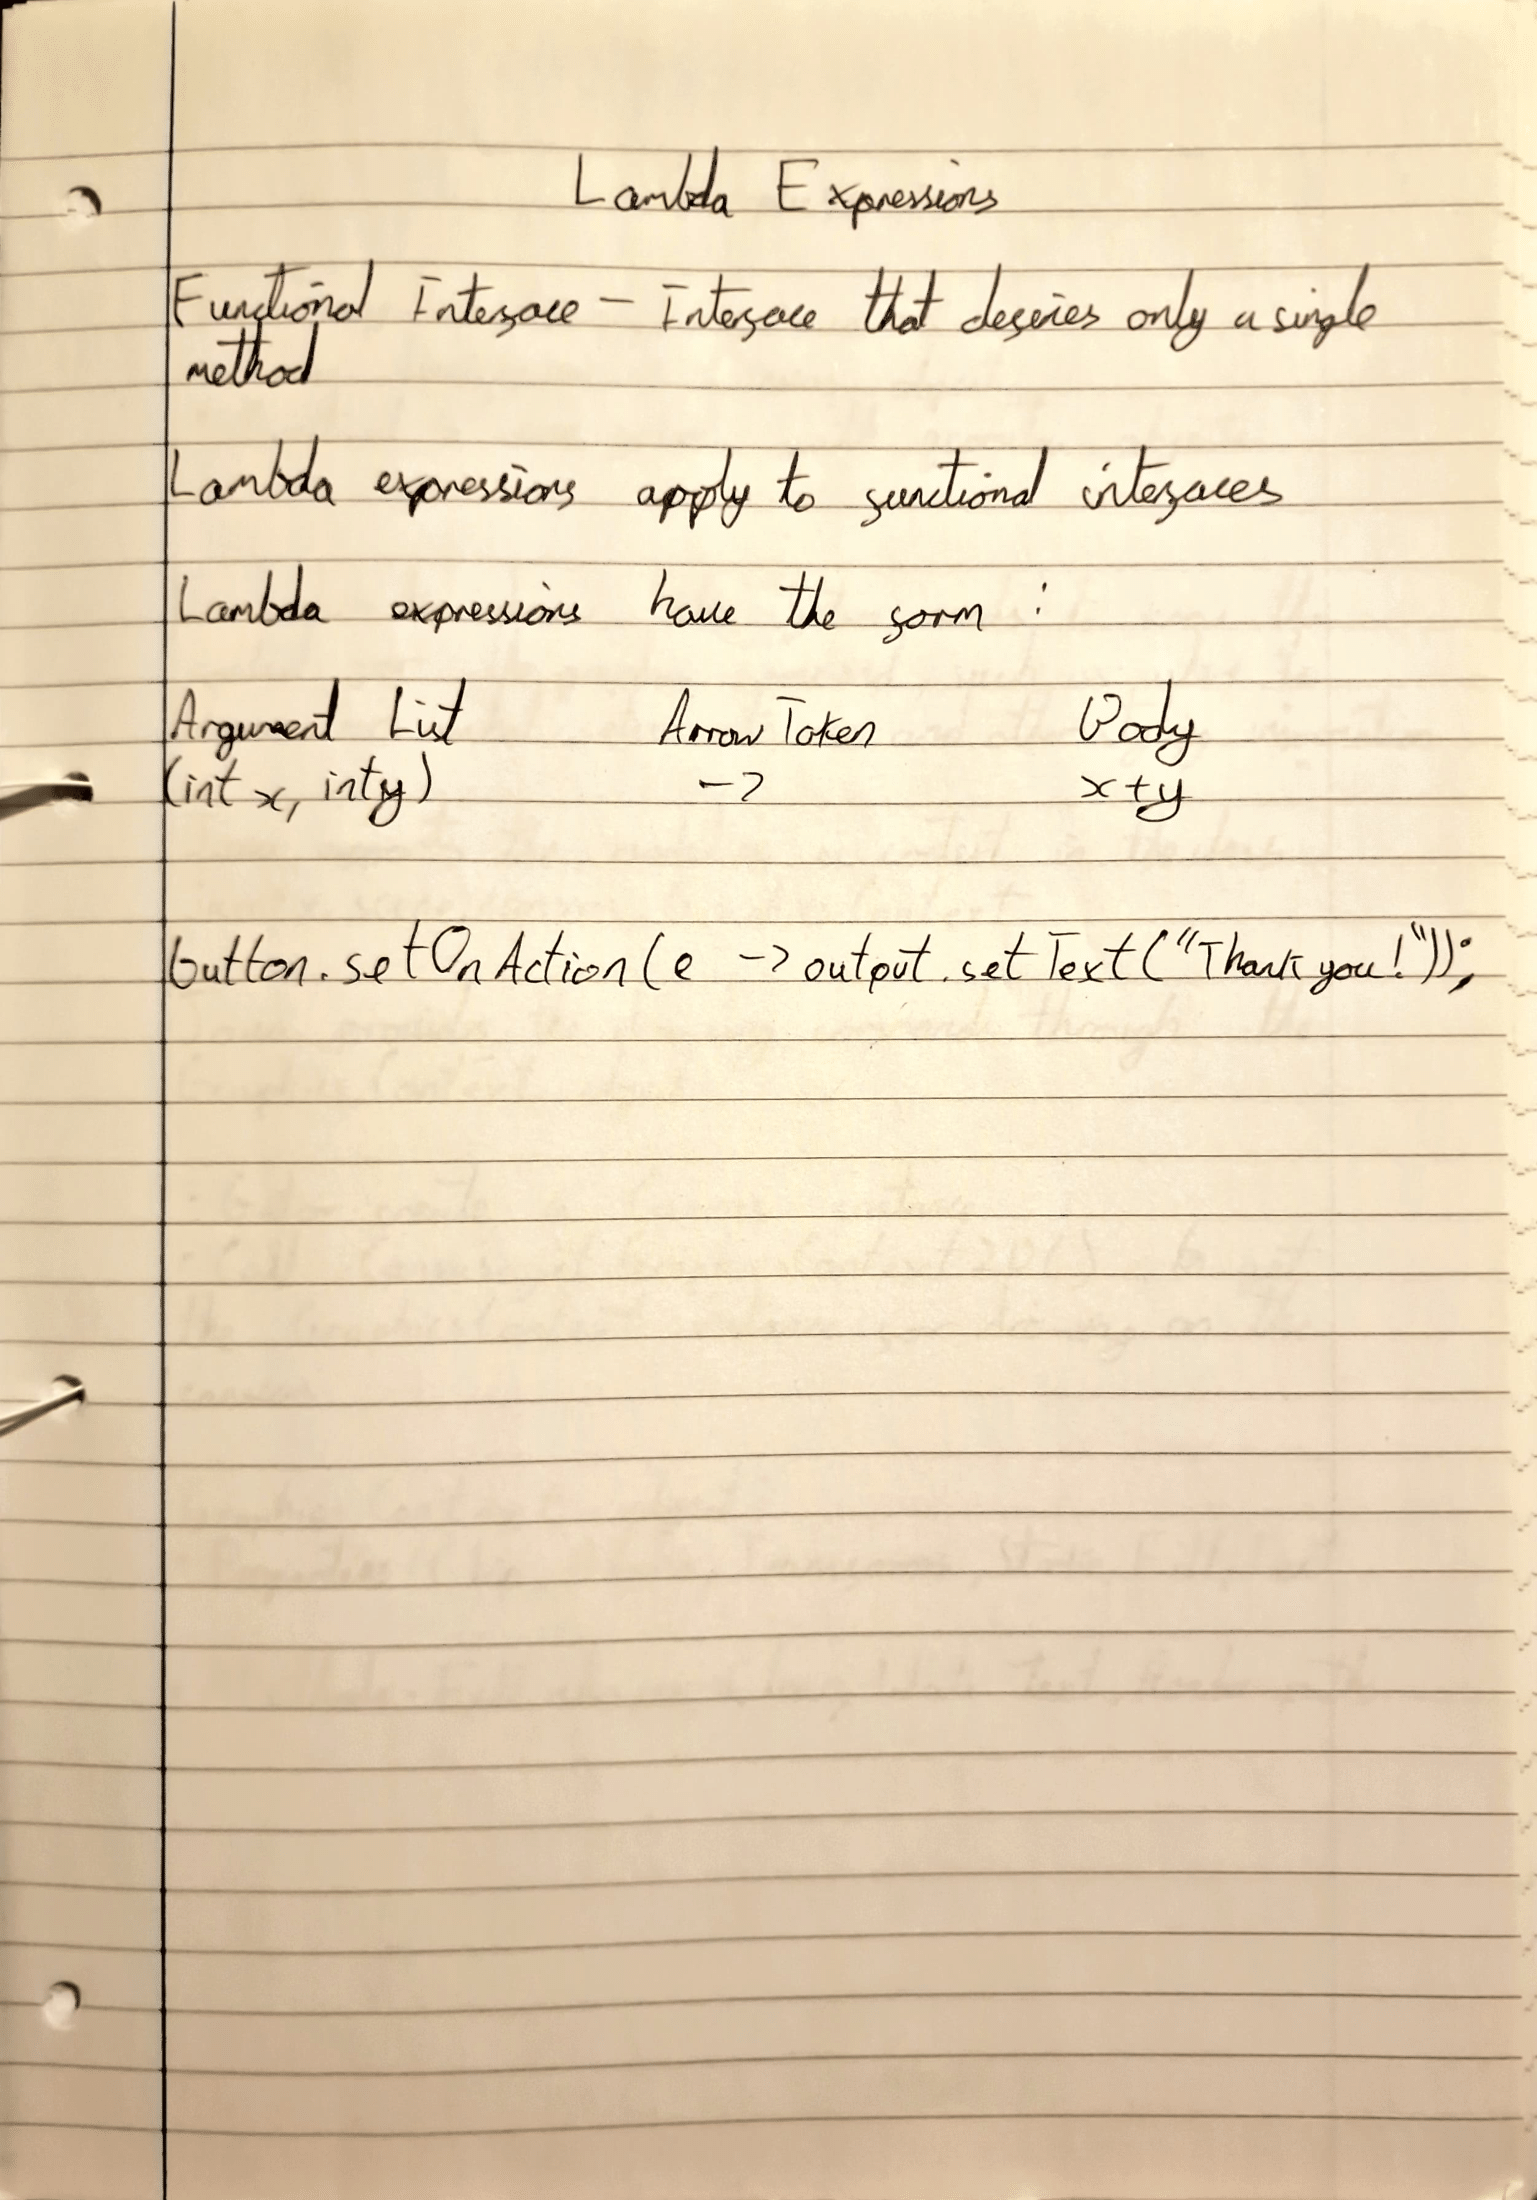 Lambda Expressions
Functional Interface - Interface that defines only a single
method
Lambda expressions apply to functional interfaces
Lambda expressions have the form :
Argument List Arrow Token Body
(int x, int y) -> x+y
button.setOnAction(e -> output.setText("Thank you!"));